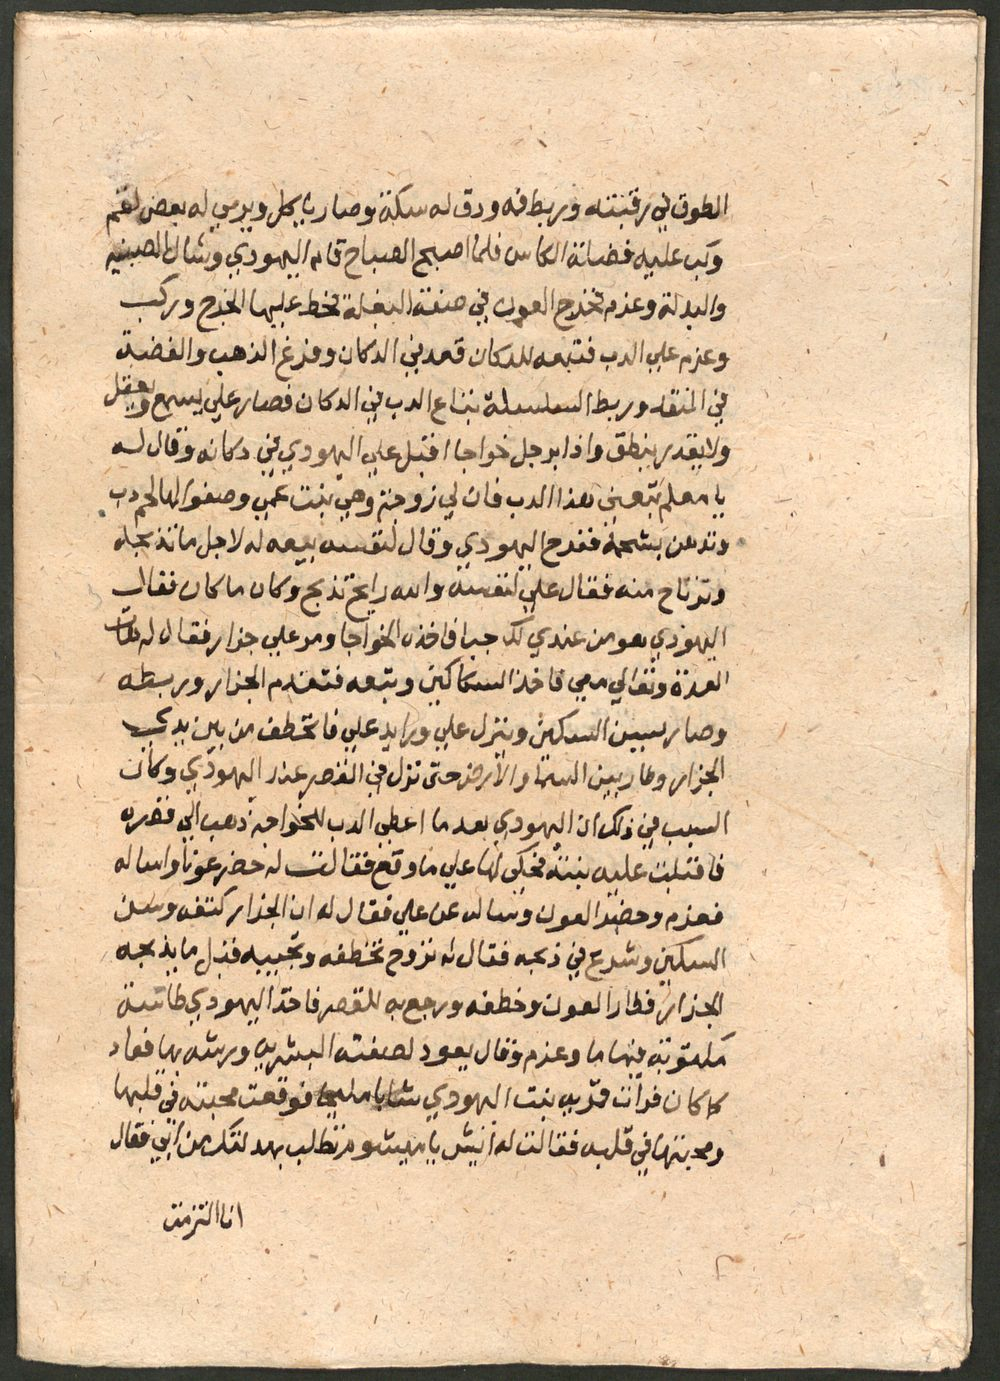 الطوق في رقبته وربطه فيه ودق له سكة وصار ياكل ويرمي له بعض لقم
وكب عليه فضلة الكاس فلما اصبح الصباح قام اليهودي وشال الصينيه
والبدلة وعزم تخرج العون في صفة البغلة فحط عليها الخرج وركب
وعزم علي الدب فتبعه للدكان قعد في الدكان وفرغ الذهب والفضة
في المنقد وربط السلسلة بتاع الدب في الدكان فصار علي يسمع ويعقل
ولا يقدر ينطق واذا برجل خواجا اقبل علي اليهودي في دكانه وقال له
يا معلم تبيعني هذا الدب فان لي زوجة وهي بنت عمي وصفوا لها لحم دب
وتدهن بشحمه ففرح اليهودي وقال لنفسه بيعه له لاجل ما تذبحه
وترتاح منه فقال علي لنفسه والله رايح تذبح وكان ما كان فقال
اليهودي هو من عندي لك جبا فاخذه الخواجا ومر علي جزار فقال له هات
العدة وتعالي معي فاخذ السكاكين وتبعه فتقدم الجزار وربطه
وصار يسن السكين ونزل علي ورايد علي فاتخطف من بين يدي
الجزار وطار بين السما والارض حتى نزل في القصر عند اليهودي وكان
السبب في ذلك ان اليهودي بعد ما اعطي الدب للخواجه ذهب الي قصره
فاقبلت عليه بنته فحكي لها علي ما وقع فقالت له حضر عونا واساله
فعزم وحضر العون وساله عن علي فقال له ان الجزار كتفه وسن
السكين وشرع في ذبحه فقال له تروح تخطفه وتجيبه قبل ما يذبحه
الجزار فطار العون وخطفه ورجع به للقصر فاخذ اليهودي طاسة
مكتوته فيها ما وعزم وقال يعود لصفته البشريه ورشه بها فعاد
كما كان فرات قمريه بنت اليهودي شابا مليحا فوقعت محبته في قلبها
ومحبتها في قلبه فقالت له انيش يا ميشوم تطلب بهدلتك من ابي فقال
انا التزمت